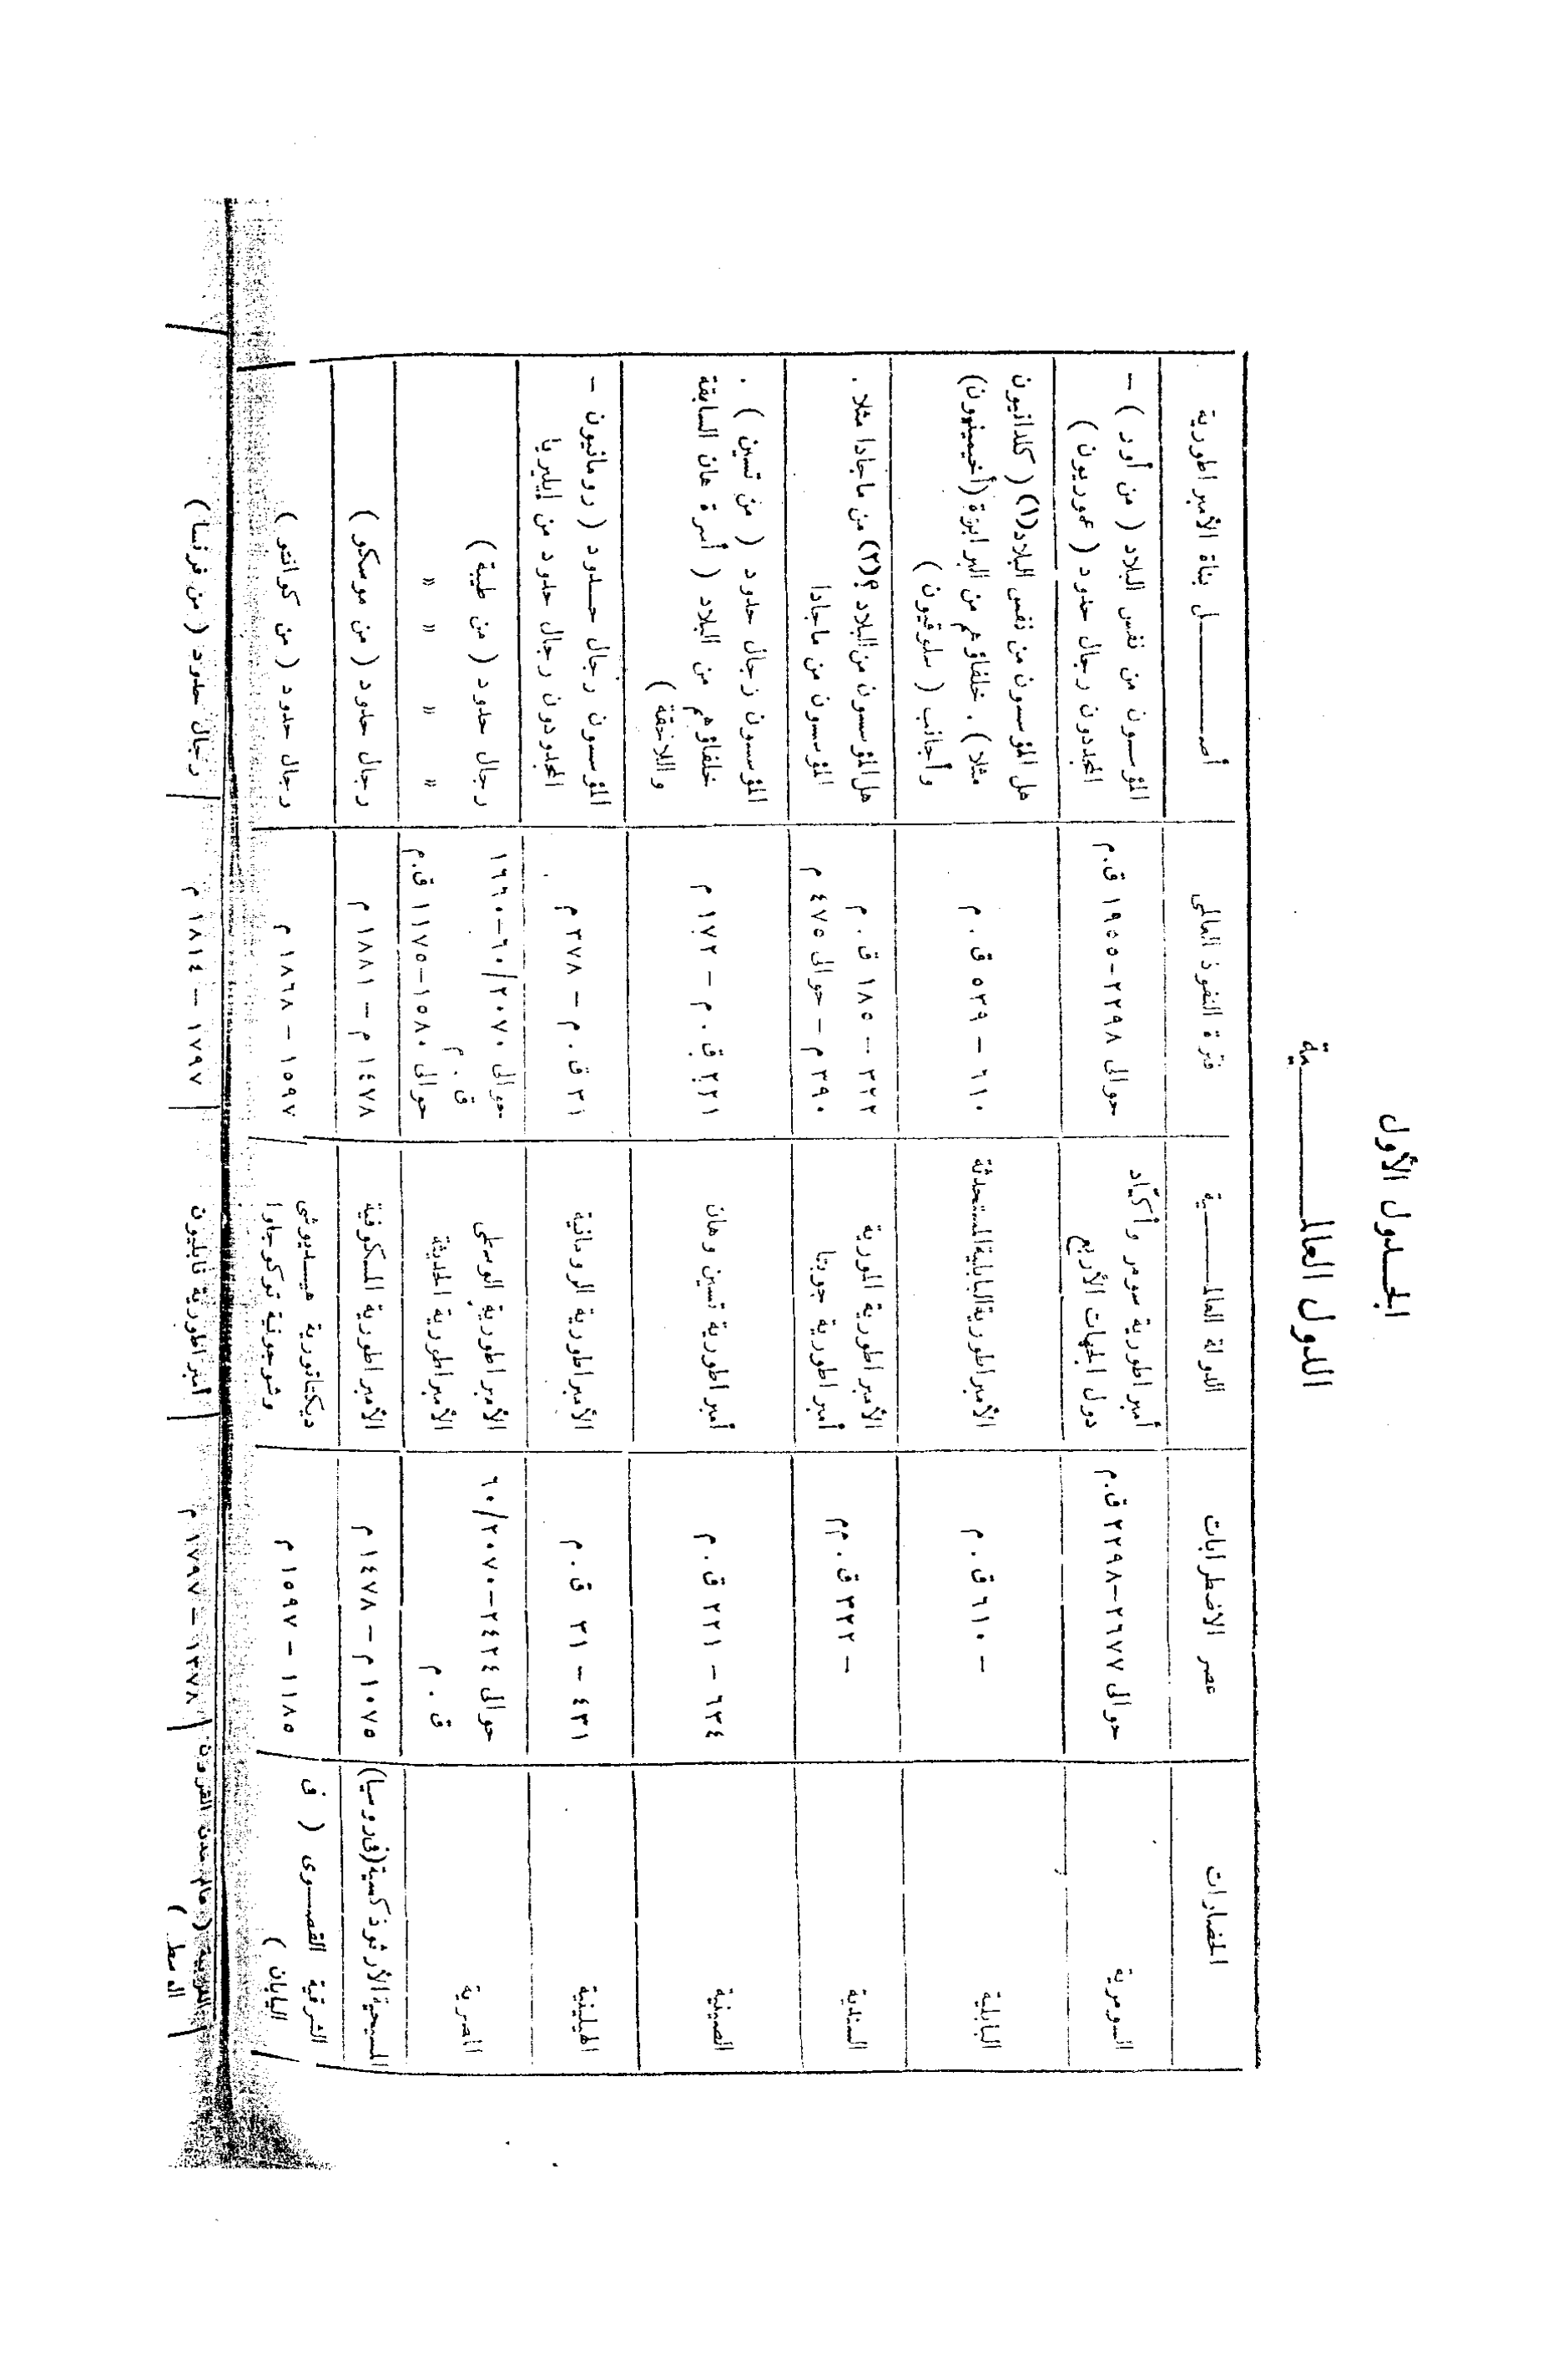 الجدول الأول
الدول العالمية
الحضارات
عصر الاضطرابات
الدولة العالمية
فترة النفوذ العالمى
أصل بناة الأمبراطورية
السومرية
حوالى ٢٦٧٧–٢٢٩٨ ق.م
أمبراطورية سومر وأكّاد
دول الجهات الأربع
حوالى ٢٢٩٨–١٩٥٥ ق.م
المؤسسون من نفس البلاد ( من أور ) –
المجددون رجال حدود ( عموريون )
البابلية
– ٦١٠ ق . م
الأمبراطورية البابلية المستحدثة
٦١٠ – ٥٣٩ ق . م
هل المؤسسون من نفس البلاد(١) ( كلدانيون
مثلا ) . خلفاؤهم من البرابرة (أخيمينيون)
وأجانب ( سلوقيون )
السندية
– ٣٢٢ ق . م
الأمبراطورية المورية
أمبراطورية جوبتا
٣٢٢ – ١٨٥ ق . م
٣٩٠ م – حوالى ٤٧٥ م
هل المؤسسون من البلاد ؟(٢) من ماجادا مثلا .
المؤسسون من ماجادا
الصينية
٦٣٤ – ٢٢١ ق . م
أمبراطورية تسين وهان
٢٢١ ق . م – ١٧٢ م
المؤسسون رجال حدود ( من تسين ) .
خلفاؤهم من البلاد ( أسرة هان السابقة
واللاحقة )
الهيلينية
٤٣١ – ٣١ ق . م
الأمبراطورية الرومانية
٣١ ق . م – ٣٧٨ م
المؤسسون رجال حدود ( رومانيون –
المجددون رجال حدود من إيليريا
المصرية
حوالى ٢٤٢٤–٦٠/٢٠٧٠
ق . م
الأمبراطورية الوسطى
الأمبراطورية الحديثة
حوالى ٦٠/٢٠٧٠–١٦٦٠
ق . م
حوالى ١٥٨٠–١١٧٥ ق.م
رجال حدود ( من طيبة )
» » » »
المسيحية الأرثوذكسية (فى روسيا)
١٠٧٥ م – ١٤٧٨ م
الأمبراطورية المسكوفية
١٤٧٨ م – ١٨٨١ م
رجال حدود ( من موسكو )
الشرقية القصوى ( فى
اليابان )
١١٨٥ – ١٥٩٧ م
ديكتاتورية هيديوشى
وشوجونية توكوجاوا
١٥٩٧ – ١٨٦٨ م
رجال حدود ( من كوانتو )
الغربية ( عالم مدن القرون
١٣٧٨ – ١٧٩٧ م
أمبراطورية نابليون
١٧٩٧ – ١٨١٤ م
رجال حدود ( من فرنسا )